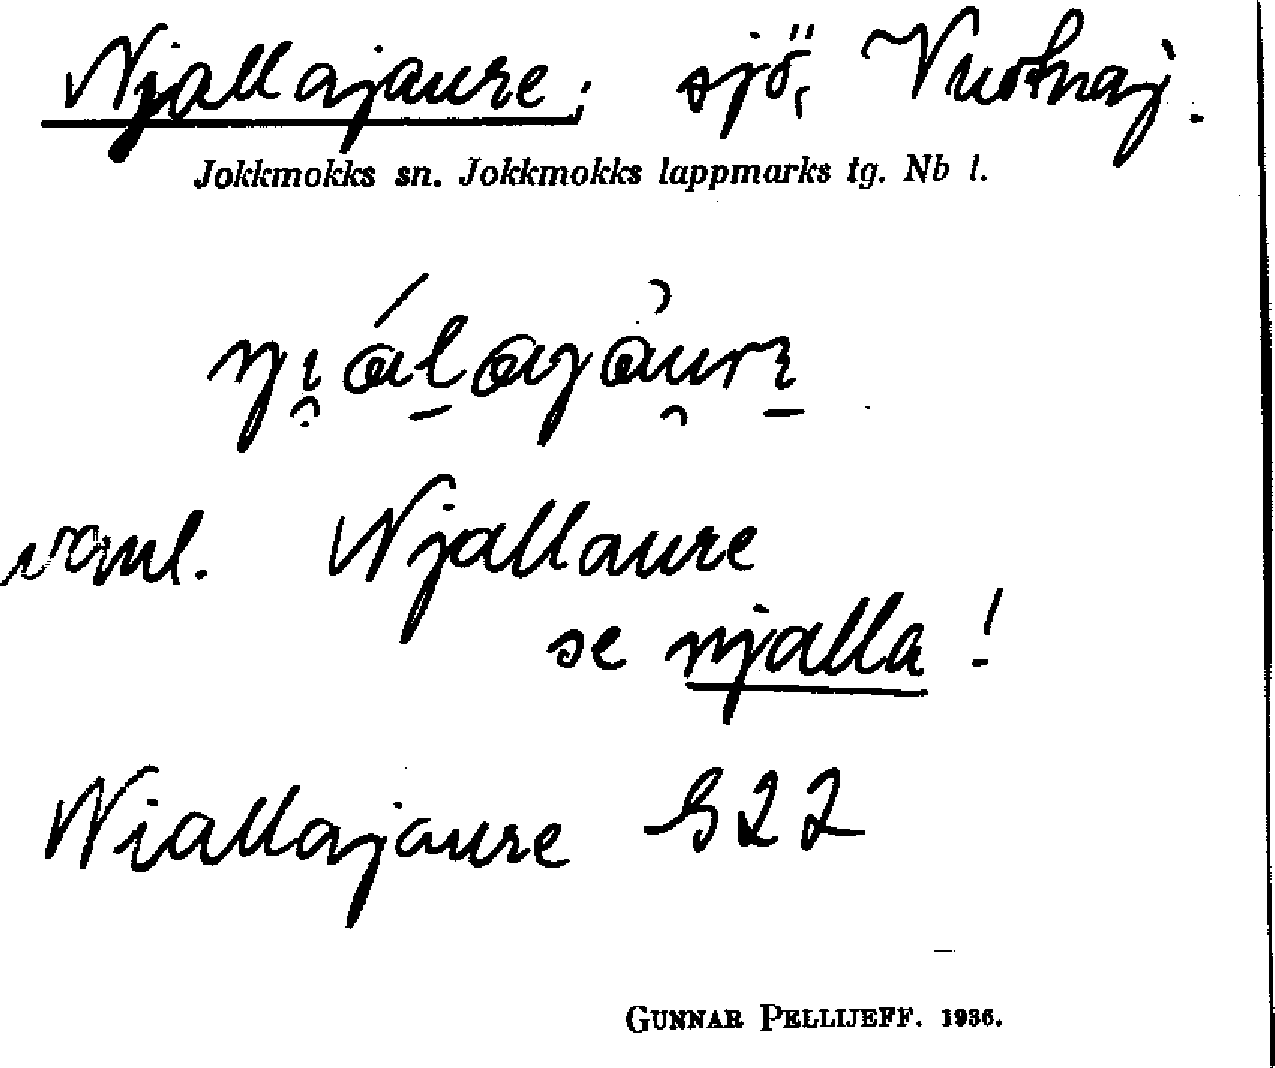 Njallajaure, sjö, Vuotnaj.
Jokkmokks sn. Jokkmokks lappmarks tg. Nb l.
vanl. Njallaure
se njalla!
Niallajaure S22
GUNNAR PELLIJEFF. 1936.